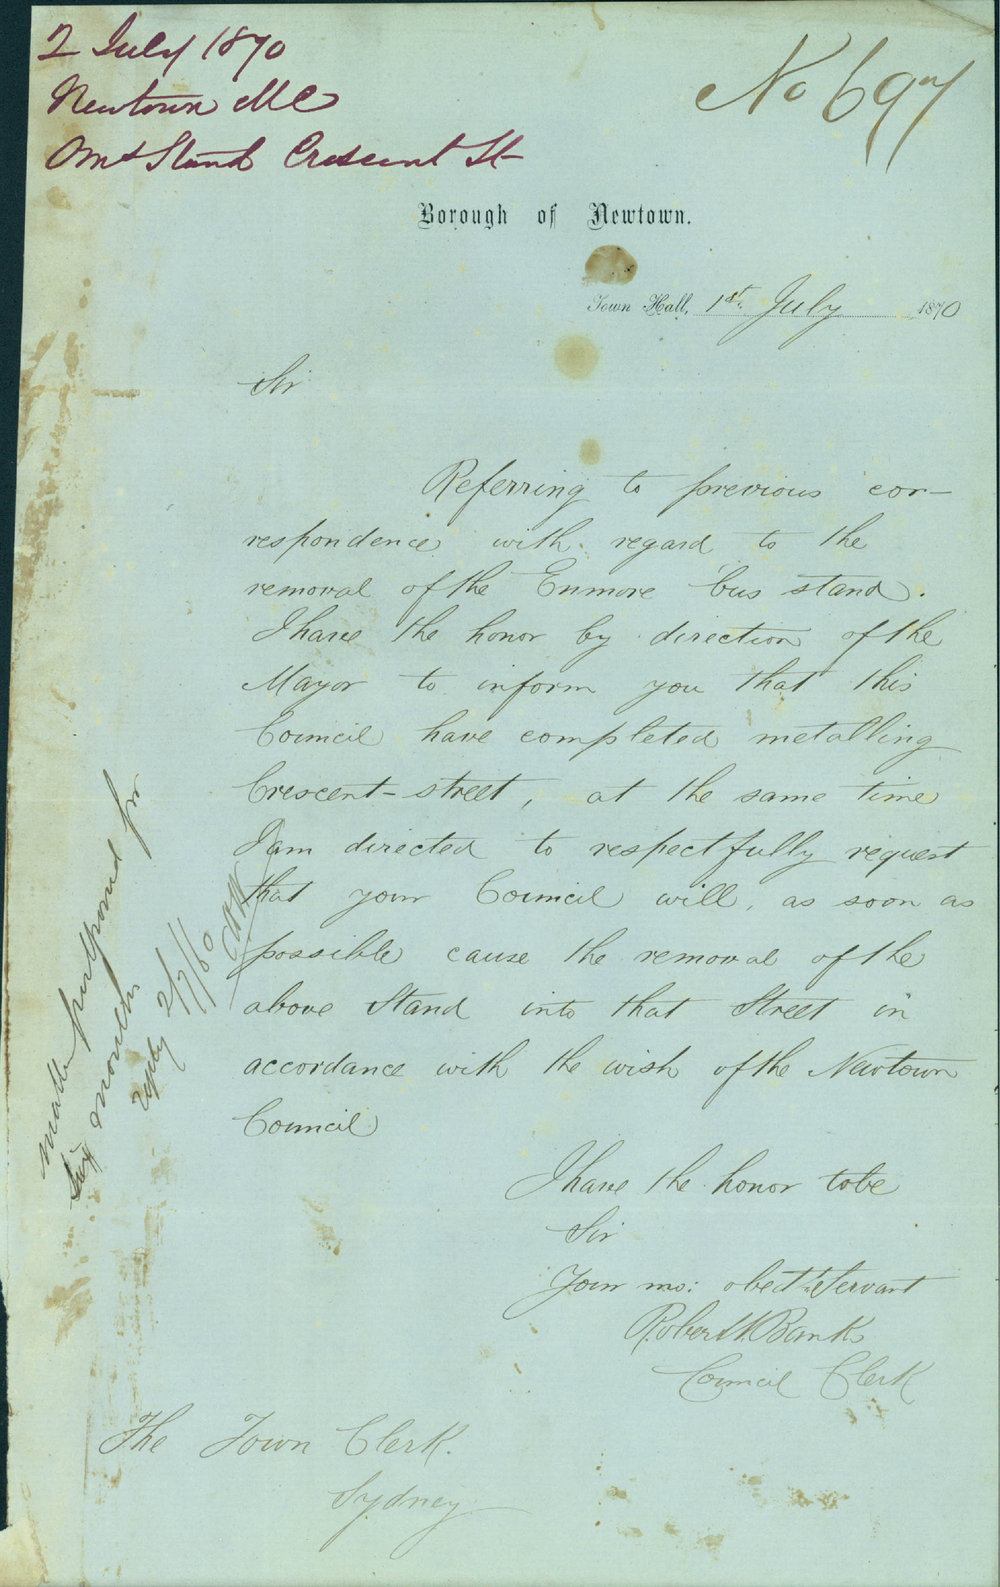 2 July 1870
Newtown MC
Omˢ Stand Crescent St
No 697
Borough of Newtown.
Town Hall, 1st. July 1870
Sir
Referring to previous cor-
respondence with regard to the
removal of the Enmore 'bus stand.
I have the honor by direction of the
Mayor to inform you that this
Council have completed metalling
Crescent-street, at the same time
I am directed to respectfully request
that your Council will, as soon as
possible cause the removal of the
above Stand into that Street in
accordance with the wish of the Newtown
Council
I have the honor to be
Sir
Your mo: obedt. Servant
Robert Banks
Council Clerk
The Town Clerk.
Sydney
Matter postponed for
Six months
Reply 2/7/60